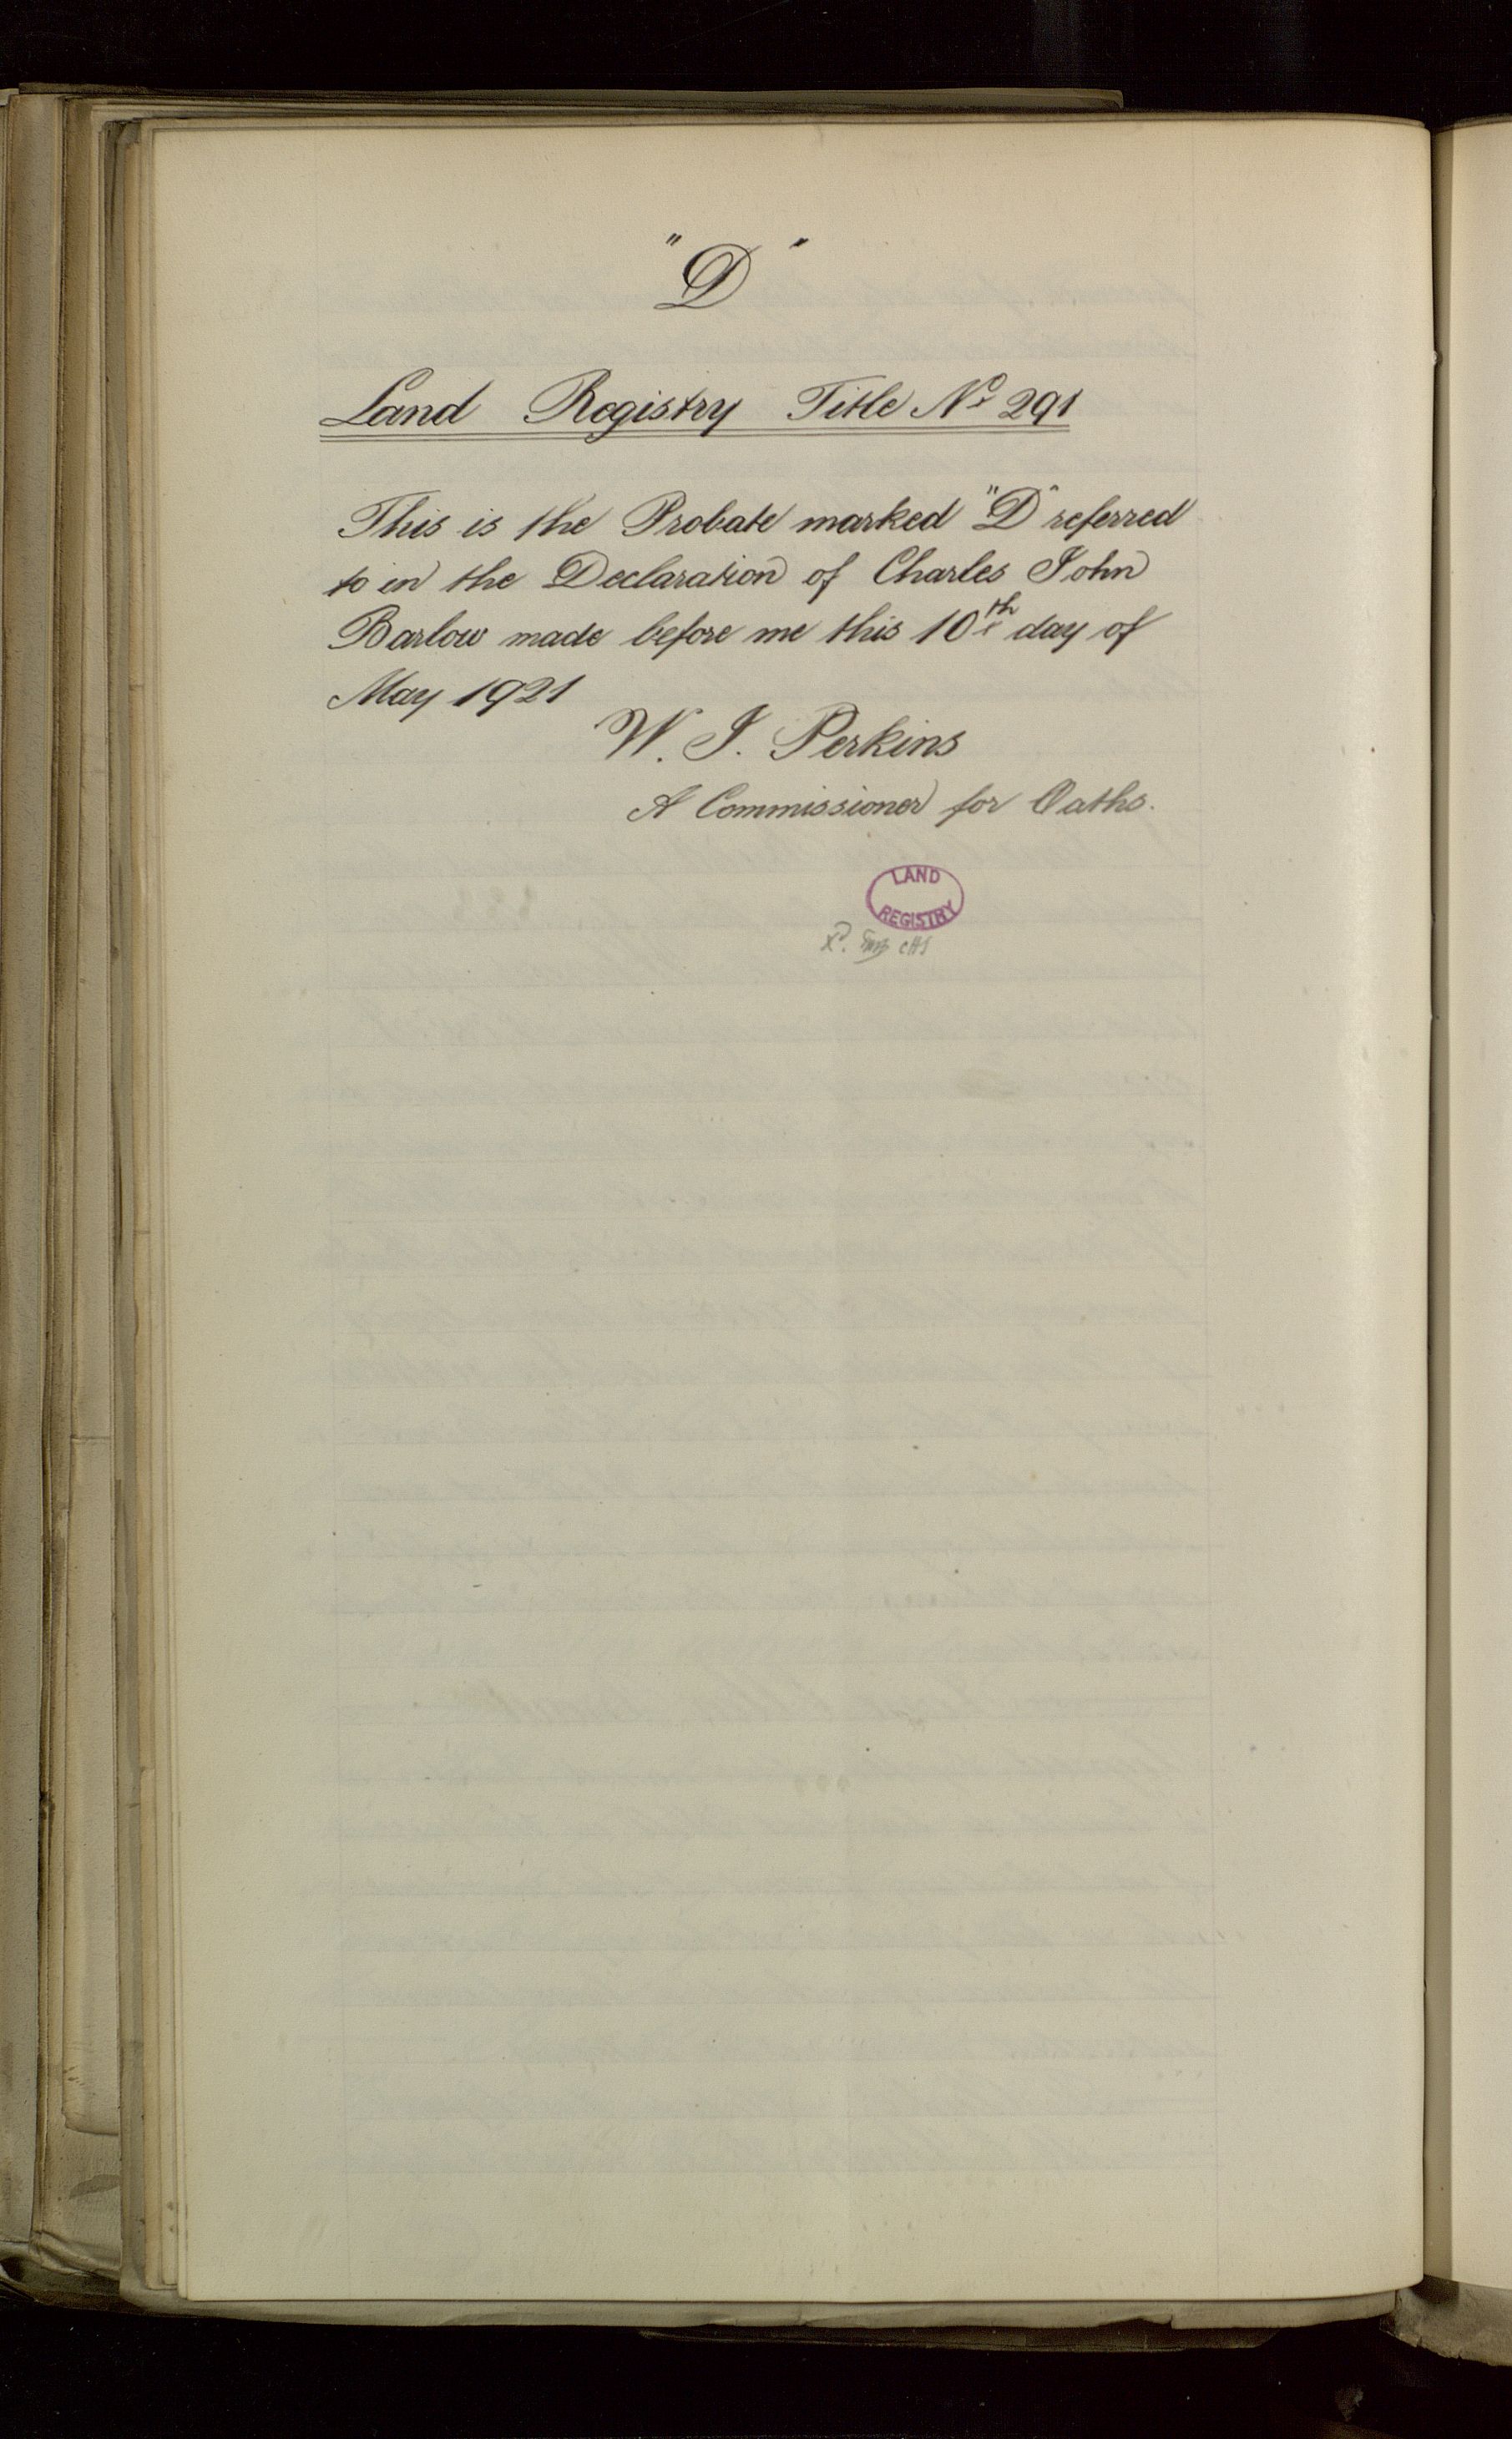 "D"
Land Registry Title No 291
This is the Probate marked "D" referred
to in the Declaration of Charles John
Barlow made before me this 10th day of
May 1921
W. J. Perkins
A Commissioner for Oaths.
LAND
REGISTRY